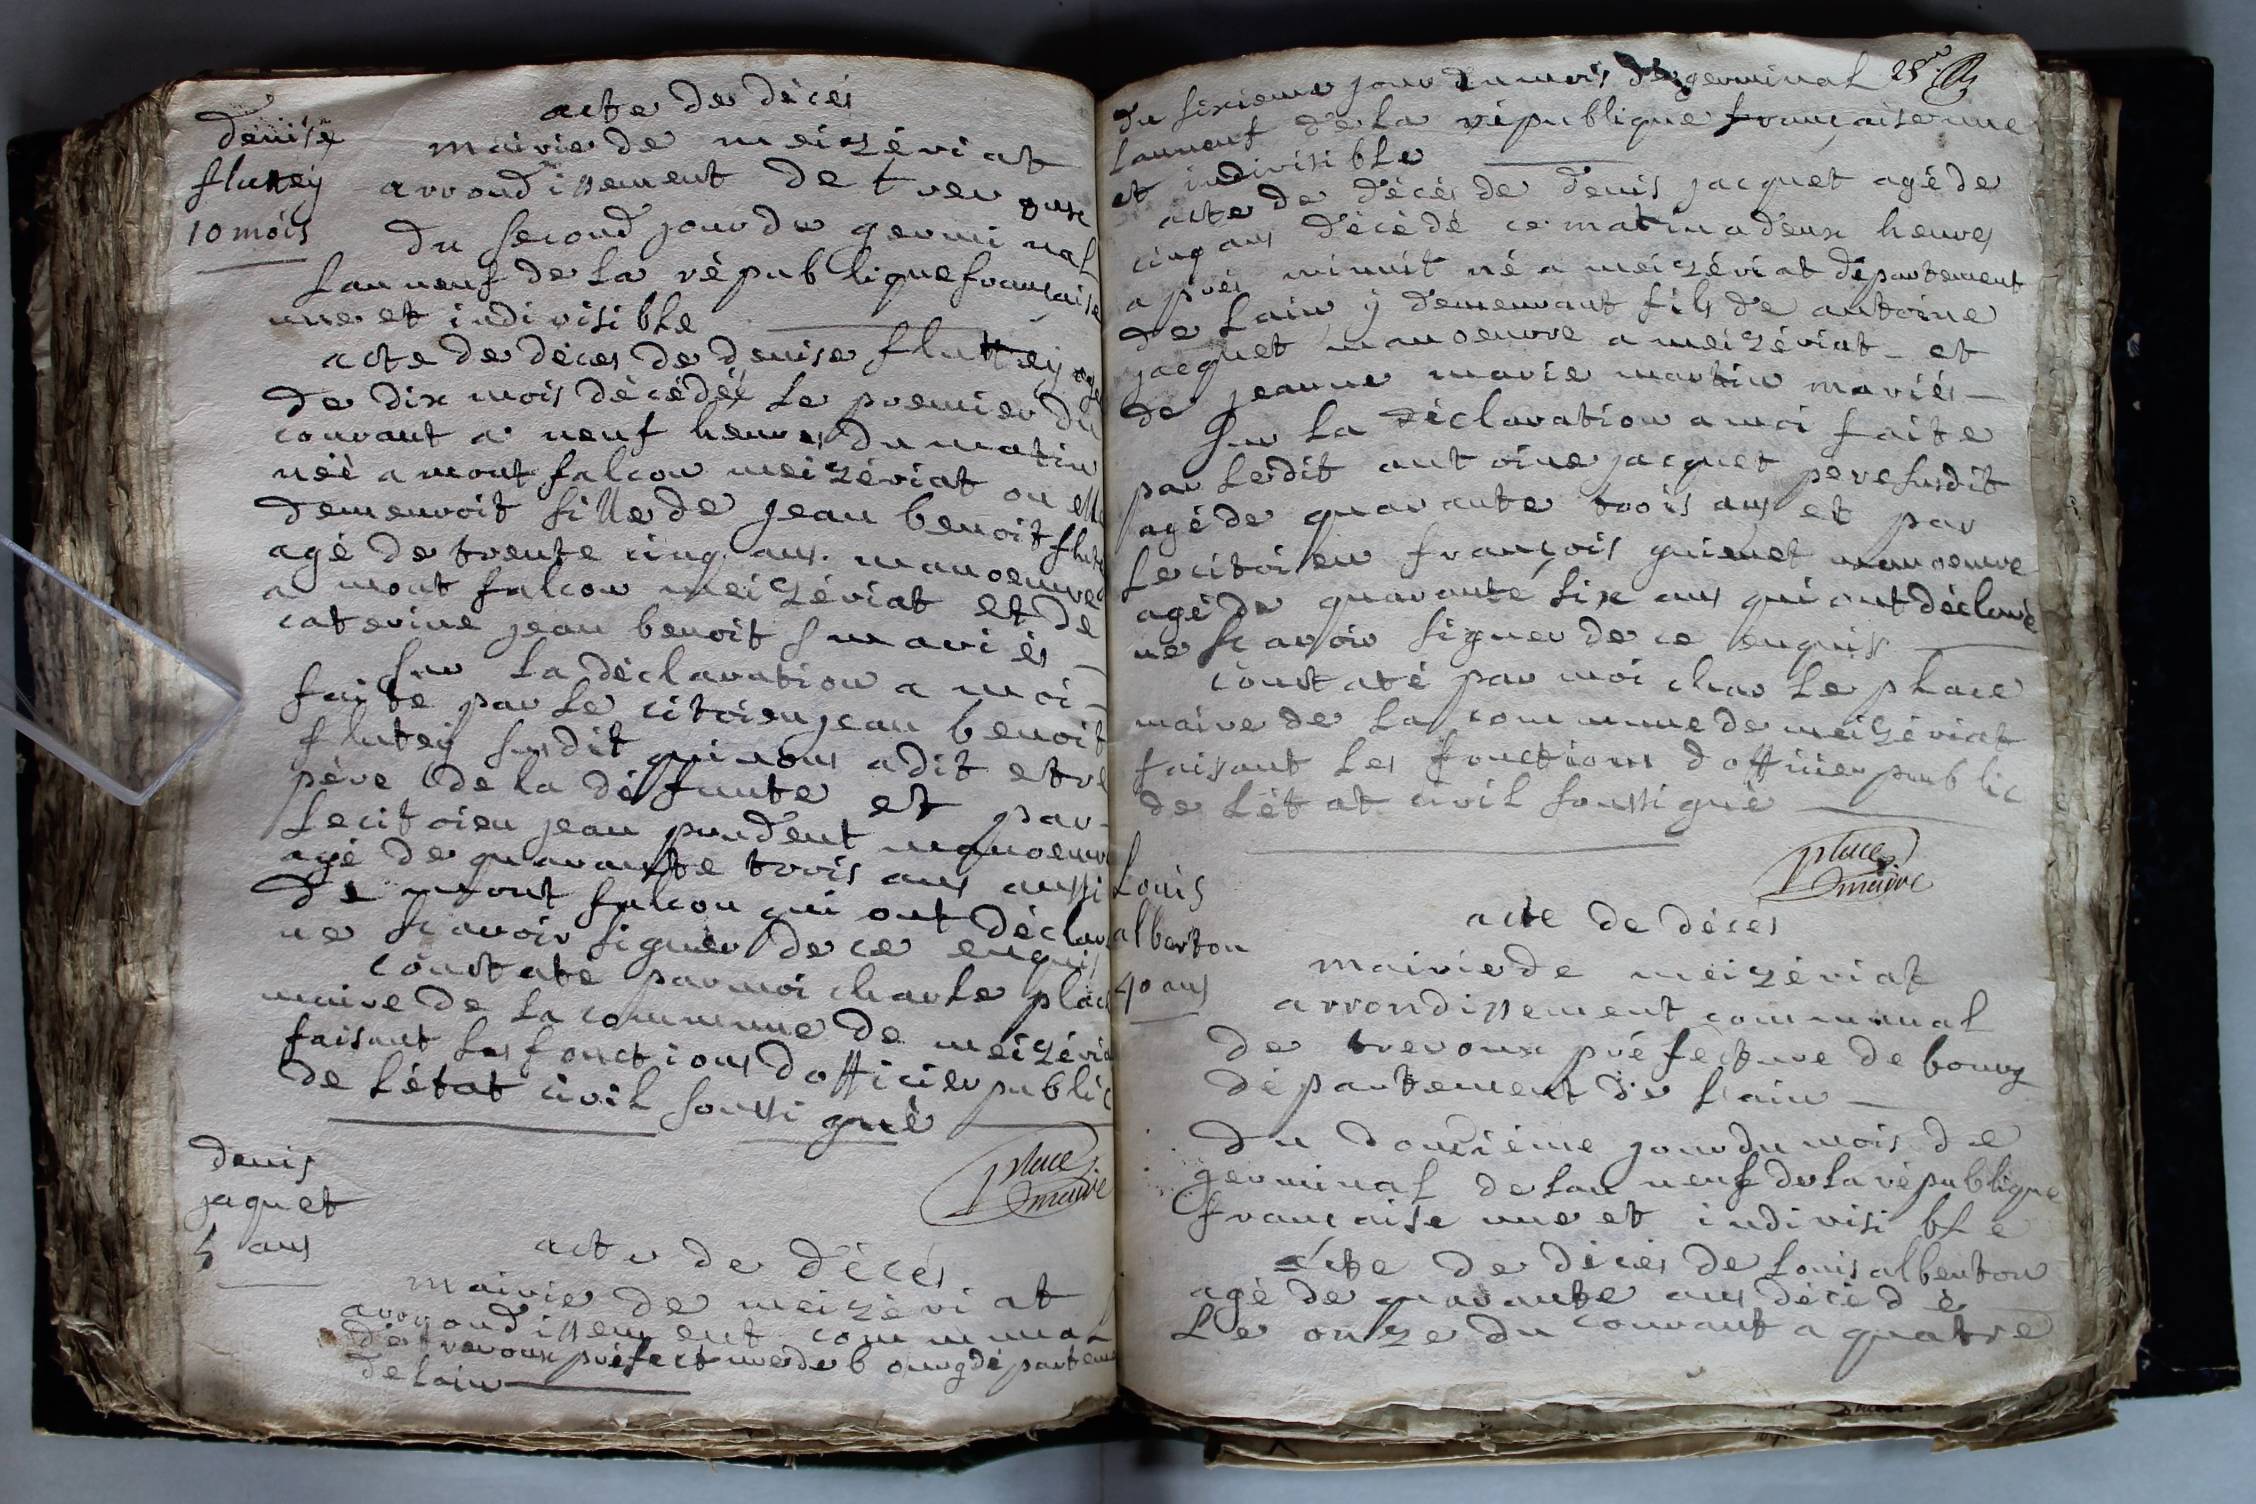 denise
flutey
10 mois
acte de décés
mairie de meizériat
arrondissement de trevoux
du second jour de germinal
lan neuf de la république francaise
une et indivisible
acte de déces de denise flutrey agé
de dix mois décédéé le premier du
courant a neuf heures du matin
néé a mont falcon meizériat ou elle
demeuroit fille de jean benoit flutey
agé de trente cinq ans manoeuvre
a mont falcon meizériat et de
caterine jean benoit mariés
sur la déclaration a moi
faite par le citoien jean benoit
flutey susdit qui nous a dit etre
pére de la défunte et par
le citoien jean prudent manoeuvre
agé de quarante trois ans aussi
de mont falcon qui ont déclaré
ne scavoir signer de ce enquis
constaté par moi charle place
maire de la commune de meizériat
faisant les fonctions dofficier public
de létat civil soussigné
place
maire
denis
jaquet
5 ans
acte de décés
mairie de meizériat
arrondissement communal
de trevoux préfecture de bourg départeme
de lain
28
du sixieme jour du mois de germinal
lanneuf de la république francaise une
et indivisible
acte de décés de denis jacquet agé de
cinq ans décédé ce matin a deux heures
aprés minuit né a meizériat département
de lain y demeurant fils de antoine
jacquet manoeuvre a meizériat et
de jeanne marie martin mariés
sur la déclaration a moi faite
par ledit antoine jacquet pere susdit
agé de quarante trois ans et par
le citoien francois guienet manoeuvre
agé de quarante six ans qui ont déclaré
ne scavoir signer de ce enquis
constaté par moi charle place
maire de la commune de meizériat
faisant les fonctions dofficier public
de létat civil soussigné
place
maire
Louis
alberton
40 ans
acte de déces
mairie de meizériat
arrondissement communal
de trevoux préfecture de bourg
département de lain
du douziéme jour du mois de
germinal de lan neuf de la république
francaise une et indivisible
acte de décés de louis alberton
agé de quarante ans décédé
le onze du courant a quatre